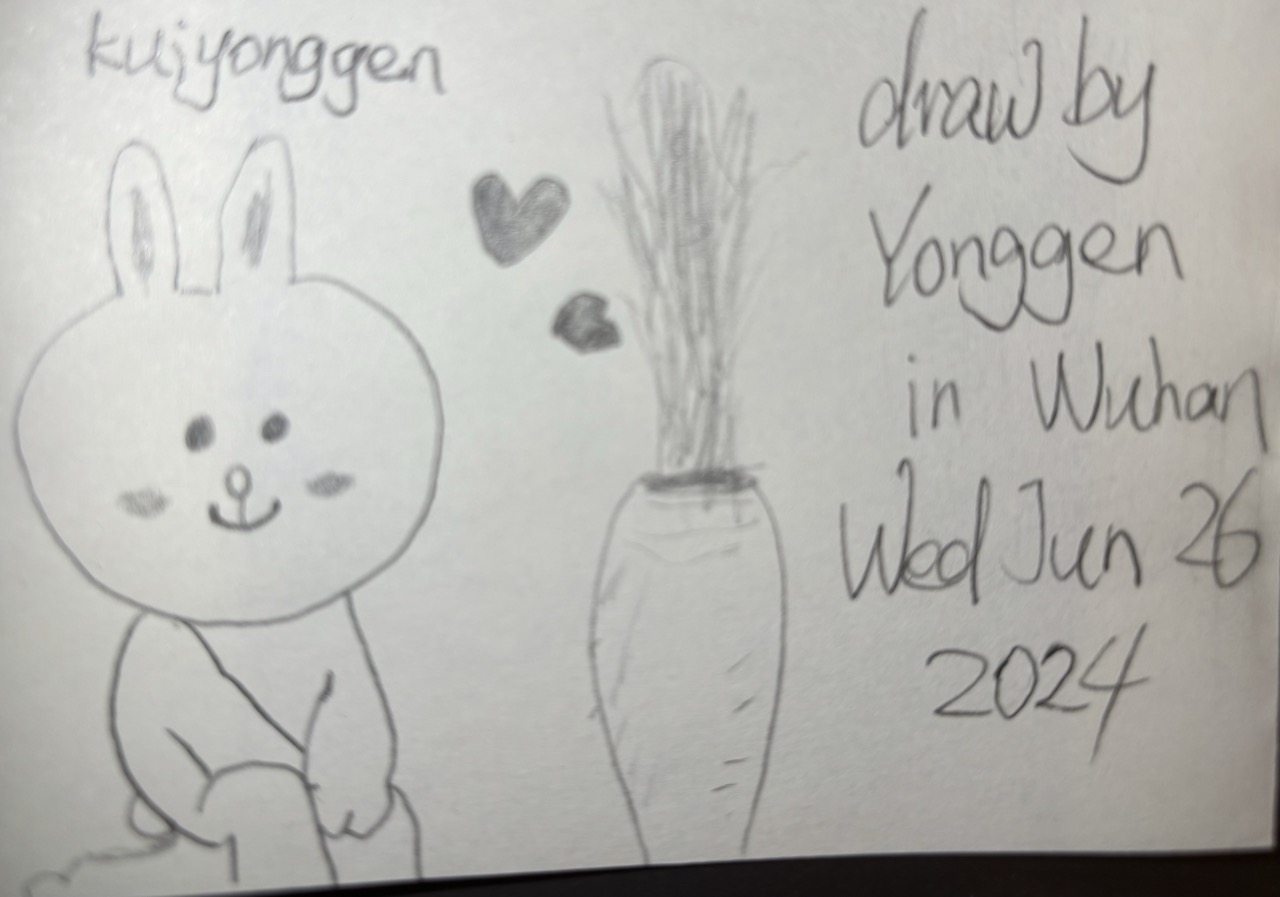 kuiyonggen
draw by
Yonggen
in Wuhan
Wed Jun 26
2024